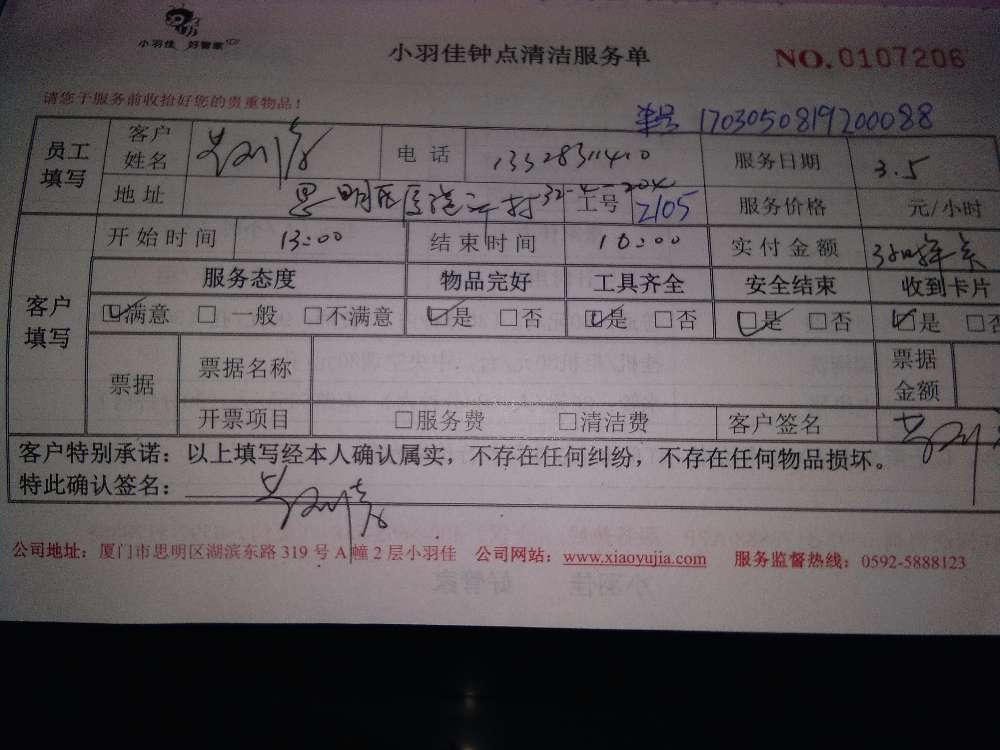 小羽佳 好管家
小羽佳钟点清洁服务单
NO.0107206
请您于服务前收拾好您的贵重物品!
单号 1703050819200088
员工填写 客户姓名 电话 13328311410 服务日期 3.5
地址 思明区 32-4-204 工号 2105 服务价格 元/小时
客户填写 开始时间 13:00 结束时间 16:00 实付金额
服务态度 物品完好 工具齐全 安全结束 收到卡片
☑满意 □一般 □不满意 ☑是 □否 ☑是 □否 ☑是 □否 ☑是 □否
票据 票据名称 票据金额
开票项目 □服务费 □清洁费 客户签名
客户特别承诺：以上填写经本人确认属实，不存在任何纠纷，不存在任何物品损坏。
特此确认签名：
公司地址：厦门市思明区湖滨东路 319 号 A 幢 2 层小羽佳 公司网站：www.xiaoyujia.com 服务监督热线：0592-5888123